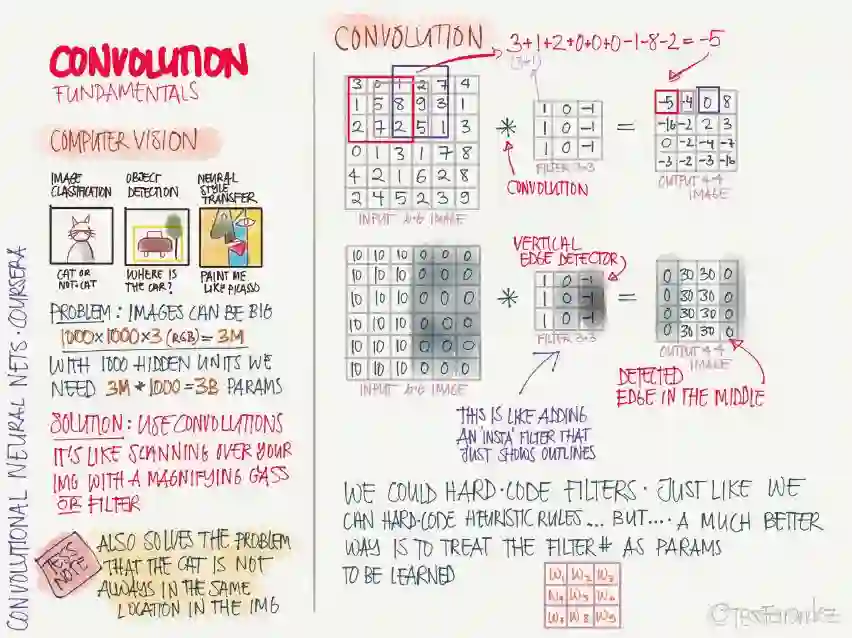 CONVOLUTION
FUNDAMENTALS
COMPUTER VISION
IMAGE
CLASSIFICATION
CAT OR
NOT-CAT
OBJECT
DETECTION
WHERE IS
THE CAR?
NEURAL
STYLE
TRANSFER
PAINT ME
LIKE PICASSO
PROBLEM: IMAGES CAN BE BIG
1000×1000×3 (RGB) = 3M
WITH 1000 HIDDEN UNITS WE
NEED 3M*1000=3B PARAMS
SOLUTION: USE CONVOLUTIONS
IT'S LIKE SCANNING OVER YOUR
IMG WITH A MAGNIFYING GASS
OR FILTER
TESS
NOTE
ALSO SOLVES THE PROBLEM
THAT THE CAT IS NOT
ALWAYS IN THE SAME
LOCATION IN THE IMG
CONVOLUTIONAL NEURAL NETS · COURSERA
CONVOLUTION
3+1+2+0+0+0-1-8-2=-5
(3*1)
3 0 1 2 7 4
1 5 8 9 3 1
2 7 2 5 1 3
0 1 3 1 7 8
4 2 1 6 2 8
2 4 5 2 3 9
INPUT 6*6 IMAGE
*
CONVOLUTION
1 0 -1
1 0 -1
1 0 -1
FILTER 3*3
=
-5 -4 0 8
-10 -2 2 3
0 -2 -4 -7
-3 -2 -3 -16
OUTPUT 4*4
IMAGE
10 10 10 0 0 0
10 10 10 0 0 0
10 10 10 0 0 0
10 10 10 0 0 0
10 10 10 0 0 0
10 10 10 0 0 0
INPUT 6*6 IMAGE
*
VERTICAL
EDGE DETECTOR
1 0 -1
1 0 -1
1 0 -1
FILTER 3*3
=
0 30 30 0
0 30 30 0
0 30 30 0
0 30 30 0
OUTPUT 4*4
IMAGE
DETECTED
EDGE IN THE MIDDLE
THIS IS LIKE ADDING
AN 'INSTA' FILTER THAT
JUST SHOWS OUTLINES
WE COULD HARD-CODE FILTERS · JUST LIKE WE
CAN HARD-CODE HEURISTIC RULES... BUT.... A MUCH BETTER
WAY IS TO TREAT THE FILTER # AS PARAMS
TO BE LEARNED
W1 W2 W3
W4 W5 W6
W7 W8 W9
©TessFerrandez